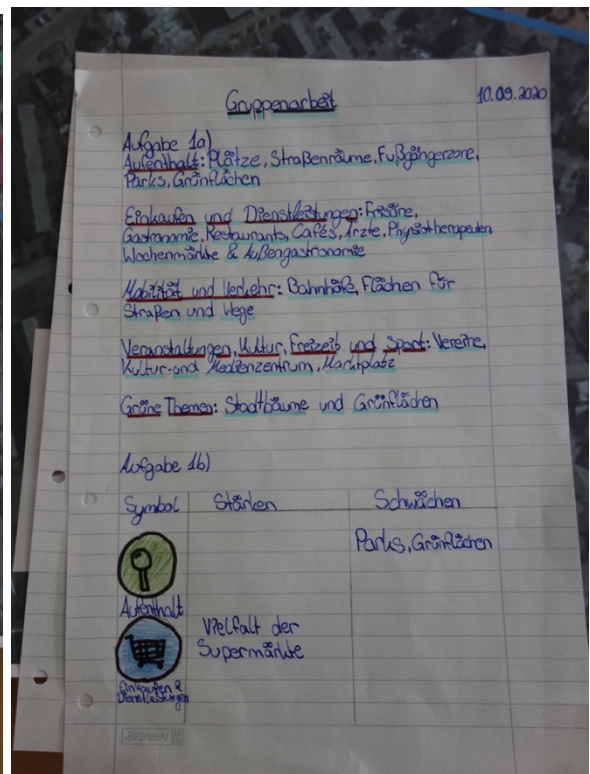 Gruppenarbeit
10.09.2020
Aufgabe 1a)
Aufenthalt: Plätze, Straßenräume, Fußgängerzone,
Parks, Grünflächen
Einkaufen und Dienstleistungen: Frisöre,
Gastronomie, Restaurants, Cafés, Ärzte, Physiotherapeuten
Wochenmärkte & Außengastronomie
Mobilität und Verkehr: Bahnhöfe, Flächen für
Straßen und Wege
Veranstaltungen, Kultur, Freizeit und Sport: Vereine,
Kultur-und Medienzentrum, Marktplatz
Grüne Themen: Stadtbäume und Grünflächen
Aufgabe 1b)
Symbol Stärken Schwächen
Parks, Grünflächen
Aufenthalt
Vielfalt der
Supermärkte
Einkaufen &
Dienstleistungen